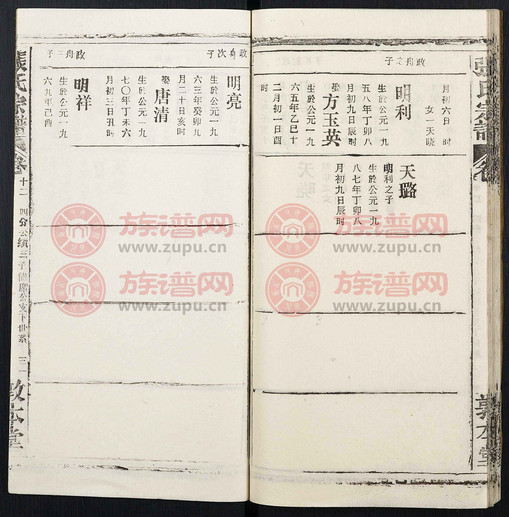 張氏宗譜
月初六日
女一天曉
政舟三子
明利
生於公元一九
五八年丁卯八
月初九日辰時
娶方玉英
生於公元一九
六五年乙巳十
二月初一日酉
天璐
明利之子
生於公元一九
八七年丁卯八
月初九日辰時
敦本堂
政舟次子
明亮
生於公元一九
六三年癸卯九
月二十日亥時
娶唐清
生於公元一九
七〇年丁未六
月初三日孔時
明祥
生於公元一九
六九年己酉
政舟三子
張氏宗譜
卷
十二
四分公
三子
公支下世系
三一
敦本堂
族谱网
www.zupu.cn
族谱网
www.zupu.cn
族谱网
www.zupu.cn
族谱网
www.zupu.cn